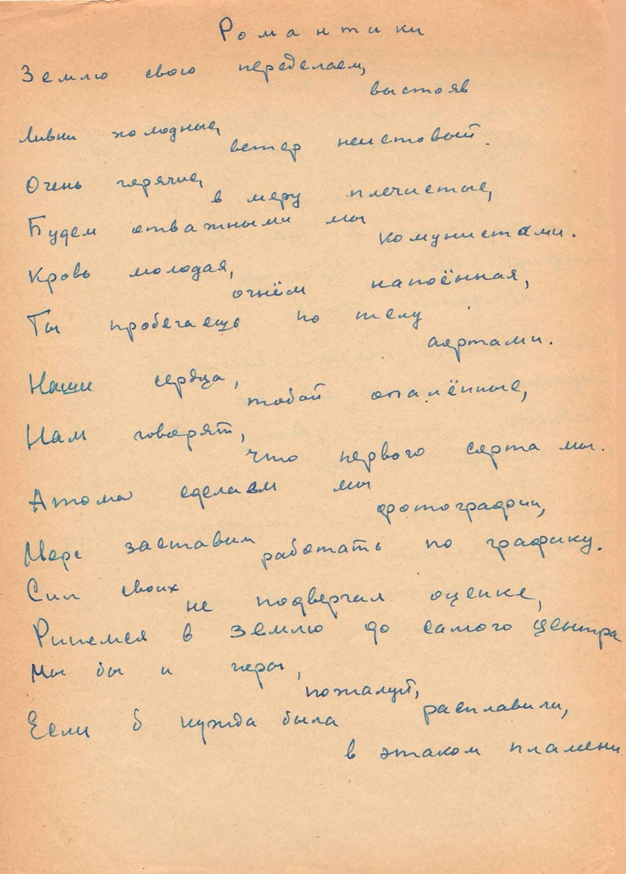 Романтики
Землю свою переделаем,
выстояв
Ливни холодные,
ветер неистовый.
Очень горячие,
в меру плечистые,
Будем отважными мы
комунистами.
Кровь молодая,
огнём напоённая,
Ты пробегаешь по телу
аортами.
Наши сердца,
тобой опалённые,
Нам говорят,
что первого сорта мы.
Атома сделаем мы
фотографии,
Море заставим
работать по графику.
Сил своих
не подвергая оценке,
Ринемся в землю до самого центра
Мы бы и
пожалуй,
расплавили,
Если б нужда была
в этаком пламени